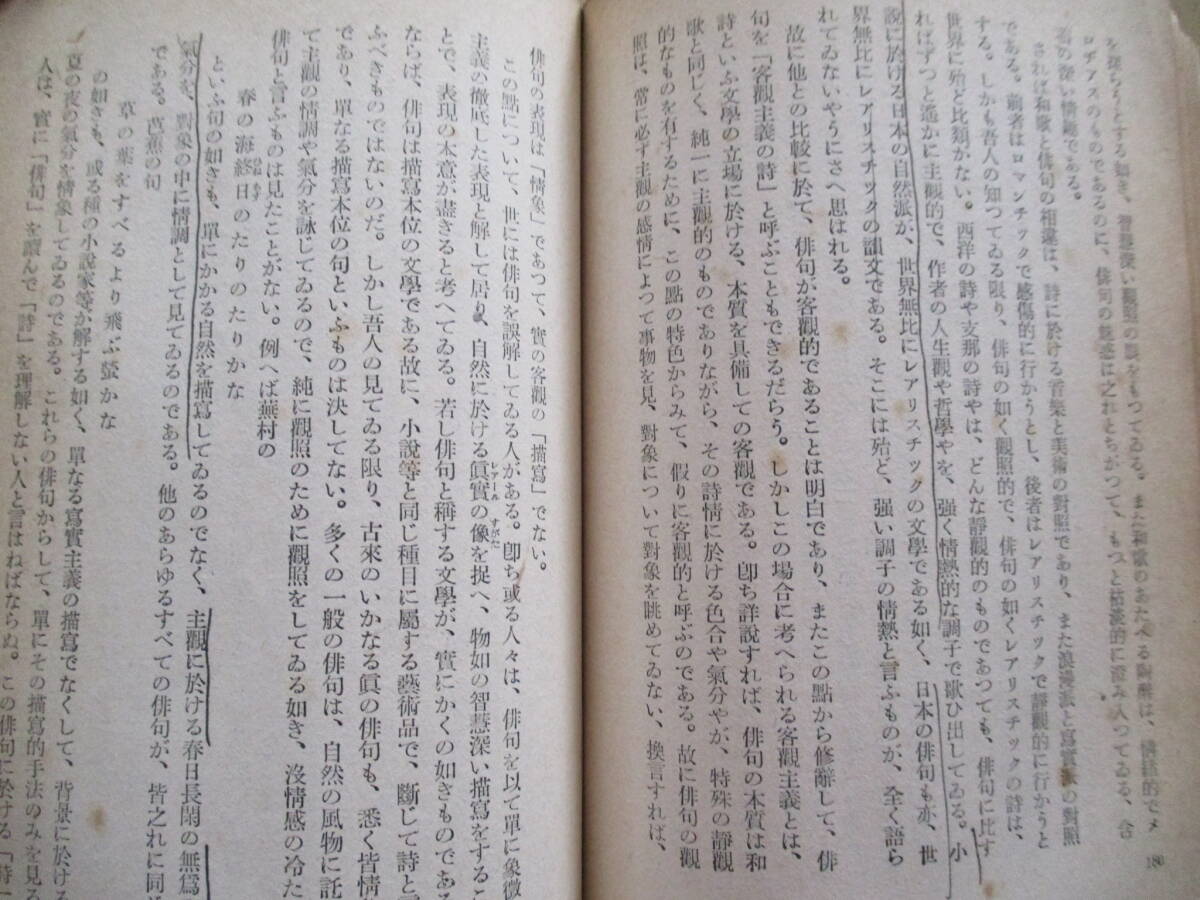 を探らうとする如き、智慧深い觀照の眼をもつてゐる。また和歌のあたへる陶醉は、情緒的でメ
ロヂアスのものであるのに、俳句の魅惑は之れとちがつて、もつと枯淡的に澄み入つてゐる、含
蓄の深い情趣である。
されば和歌と俳句の相違は、詩に於ける音樂と美術の對照であり、また浪漫派と寫實派の對照
である。前者はロマンチックで感傷的に行かうとし、後者はレアリスチックで靜觀的に行かうと
する。しかも吾人の知つてゐる限り、俳句の如く觀照的で、俳句の如くレアリスチックの詩は、
世界に殆ど比類がない。西洋の詩や支那の詩やは、どんな靜觀的のものであつても、俳句に比す
ればずつと遥かに主觀的で、作者の人生觀や哲學やを、强く情熱的な調子で歌ひ出してゐる。小
說に於ける日本の自然派が、世界無比にレアリスチックの文學である如く、日本の俳句も亦、世
界無比にレアリスチックの韻文である。そこには殆ど、强い調子の情熱と言ふものが、全く語ら
れてゐないやうにさへ思はれる。
故に他との比較に於て、俳句が客觀的であることは明白であり、またこの點から修辭して、俳
句を「客觀主義の詩」と呼ぶこともできるだらう。しかしこの場合に考へられる客觀主義とは、
詩といふ文學の立場に於ける、本質を具備しての客觀である。卽ち詳說すれば、俳句の本質は和
歌と同じく、純一に主觀的のものでありながら、その詩情に於ける色合や氣分やが、特殊の靜觀
的なものを有するために、この點の特色からみて、假りに客觀的と呼ぶのである。故に俳句の觀
照は、常に必ず主觀の感情によつて事物を見、對象について對象を眺めてゐない、換言すれば、
180
俳句の表現は「情象」であつて、實の客觀の「描寫」でない。
この點について、世には俳句を誤解してゐる人がある。卽ち或る人々は、俳句を以て單に象徵
主義の徹底した表現と解して居り、自然に於ける眞實の像を捉へ、物如の智慧深い描寫をするこ
レアール すがた
とで、表現の本意が盡きると考へてゐる。若し俳句と稱する文學が、實にかくの如きものである
ならば、俳句は描寫本位の文學である故に、小說等と同じ種目に屬する藝術品で、斷じて詩と言
ふべきものではないのだ。しかし吾人の見てゐる限り、古來のいかなる眞の俳句も、悉く皆情
であり、單なる描寫本位の句といふものは決してない。多くの一般の俳句は、自然の風物に託
て主觀の情調や氣分を詠じてゐるので、純に觀照のために觀照をしてゐる如き、沒情感の冷た
俳句と言ふものは見たことがない。例へば蕪村の
春の海終日のたりのたりかな
ひねもす
といふ句の如きも、單にかかる自然を描寫してゐるのでなく、主觀に於ける春日長閑の無爲
氣分を、對象の中に情調として見てゐるのである。他のあらゆるすべての俳句が、皆之れに同
である。芭蕉の句
草の葉をすべるより飛ぶ螢かな
の如きも、或る種の小說家等が解する如く、單なる寫實主義の描寫でなくして、背景に於ける
夏の夜の氣分を情象してゐるのである。これらの俳句からして、單にその描寫的手法のみを見る
人は、實に「俳句」を讀んで「詩」を理解しない人と言はねばならぬ。この俳句に於ける「詩